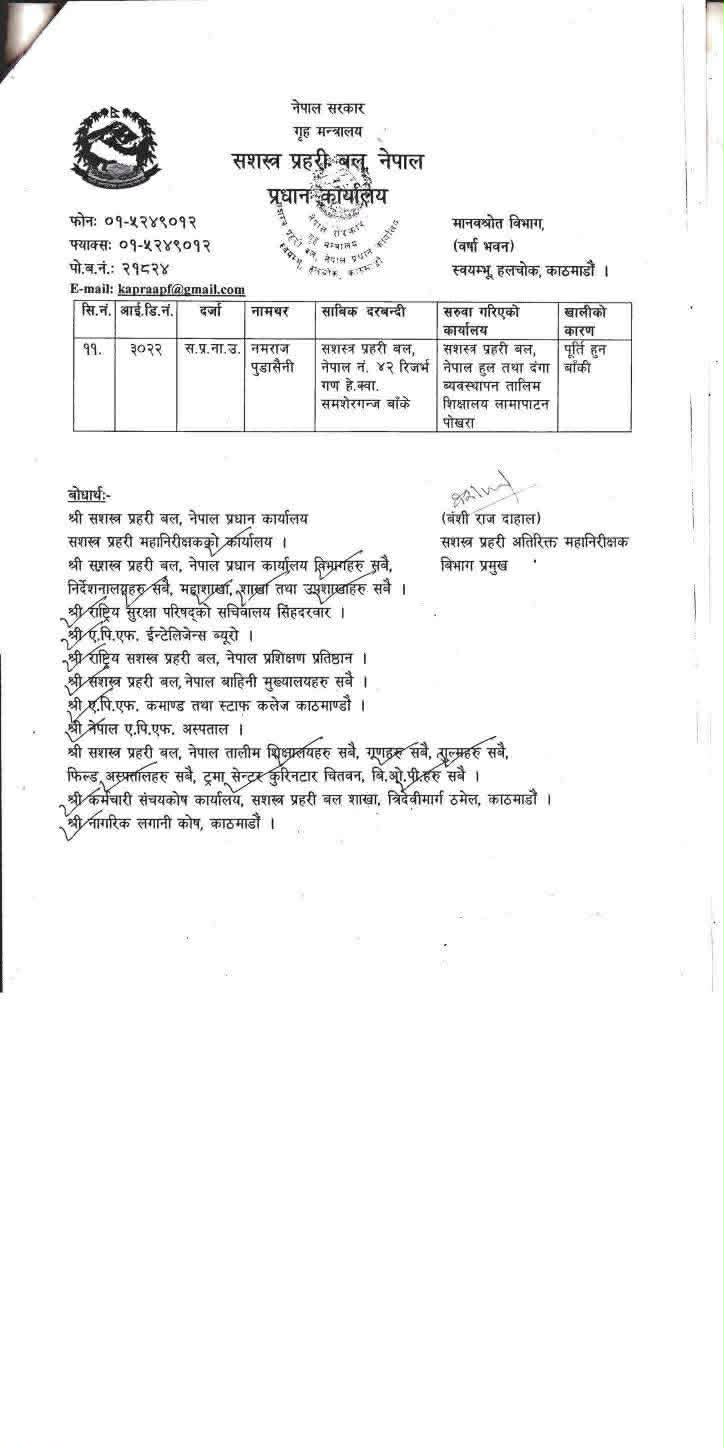 नेपाल सरकार
गृह मन्त्रालय
सशस्त्र प्रहरी बल, नेपाल
प्रधान कार्यालय
नेपाल सरकार
गृह मन्त्रालय
सशस्त्र प्रहरी बल, नेपाल प्रधान कार्यालय
स्वयम्भु, हलचोक, काठमाडौं
फोनः ०१-५२४९०१२
मानवश्रोत विभाग,
फ्याक्सः ०१-५२४९०१२
(वर्षा भवन)
पो.ब.नं.: २१८२४
स्वयम्भू, हलचोक, काठमाडौं ।
E-mail: kapraapf@gmail.com
सि.नं. आई.डि.नं. दर्जा नामथर साबिक दरबन्दी सरुवा गरिएको खालीको
कार्यालय कारण
११. ३०२२ स.प्र.ना.उ. नमराज सशस्त्र प्रहरी बल, सशस्त्र प्रहरी बल, पूर्ति हुन
पुडासैनी नेपाल नं. ४२ रिजर्भ नेपाल हुल तथा दंगा बाँकी
गण हे.क्वा. व्यवस्थापन तालिम
समशेरगन्ज बाँके शिक्षालय लामापाटन
पोखरा
बोधार्थः-
श्री सशस्त्र प्रहरी बल, नेपाल प्रधान कार्यालय
(बंशी राज दाहाल)
सशस्त्र प्रहरी महानिरीक्षकको कार्यालय ।
सशस्त्र प्रहरी अतिरिक्त महानिरीक्षक
श्री सशस्त्र प्रहरी बल, नेपाल प्रधान कार्यालय विभागहरु सबै,
विभाग प्रमुख
निर्देशनालयहरु सबै, महाशाखा, शाखा तथा उपशाखाहरु सबै ।
श्री राष्ट्रिय सुरक्षा परिषद्को सचिवालय सिंहदरवार ।
श्री ए.पि.एफ. ईन्टेलिजेन्स ब्यूरो ।
श्री राष्ट्रिय सशस्त्र प्रहरी बल, नेपाल प्रशिक्षण प्रतिष्ठान ।
श्री सशस्त्र प्रहरी बल, नेपाल बाहिनी मुख्यालयहरु सबै ।
श्री ए.पि.एफ. कमाण्ड तथा स्टाफ कलेज काठमाण्डौ ।
श्री नेपाल ए.पि.एफ. अस्पताल ।
श्री सशस्त्र प्रहरी बल, नेपाल तालीम शिक्षालयहरु सबै, गणहरु सबै, गुल्महरु सबै,
फिल्ड अस्पतालहरु सबै, ट्रमा सेन्टर कुरिनटार चितवन, बि.ओ.पी.हरु सबै ।
श्री कर्मचारी संचयकोष कार्यालय, सशस्त्र प्रहरी बल शाखा, त्रिदेवीमार्ग ठमेल, काठमाडौं ।
श्री नागरिक लगानी कोष, काठमाडौं ।